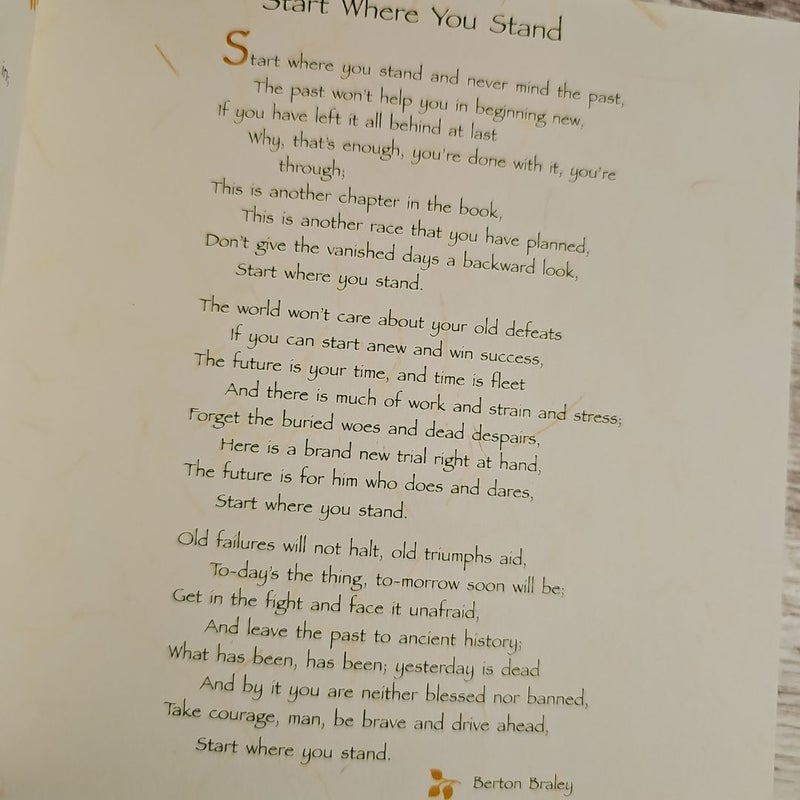 Start Where You Stand
Start where you stand and never mind the past,
The past won't help you in beginning new,
If you have left it all behind at last
Why, that's enough, you're done with it, you're
through;
This is another chapter in the book,
This is another race that you have planned,
Don't give the vanished days a backward look,
Start where you stand.
The world won't care about your old defeats
If you can start anew and win success,
The future is your time, and time is fleet
And there is much of work and strain and stress;
Forget the buried woes and dead despairs,
Here is a brand new trial right at hand,
The future is for him who does and dares,
Start where you stand.
Old failures will not halt, old triumphs aid,
To-day's the thing, to-morrow soon will be;
Get in the fight and face it unafraid,
And leave the past to ancient history;
What has been, has been; yesterday is dead
And by it you are neither blessed nor banned,
Take courage, man, be brave and drive ahead,
Start where you stand.
Berton Braley